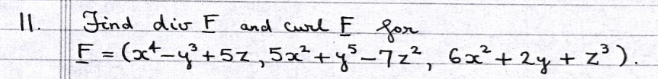 11. Find div F and curl F for
F = (x⁴-y³+5z, 5x²+y⁵-7z², 6x²+2y+z³).